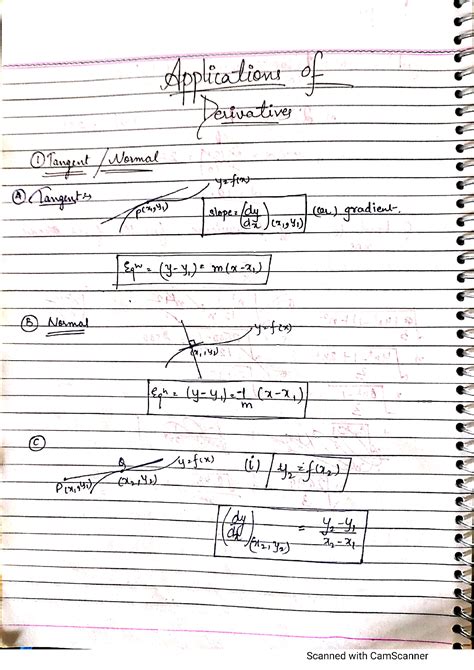 Applications of
Derivatives
① Tangent / Normal
Ⓐ Tangents
y=f(x)
P(x₁,y₁)
slope=(dy/dx)(x₁,y₁) (or) gradient.
Eqⁿ = (y-y₁) = m(x-x₁)
Ⓑ Normal
y=f(x)
(x₁,y₁)
Eqⁿ = (y-y₁) = -1/m (x-x₁)
Ⓒ
P(x₁,y₁) Q (x₂,y₂) y=f(x) (i) y₂=f(x₂)
(dy/dx)(x₂,y₂) = y₂-y₁/x₂-x₁
Scanned with CamScanner